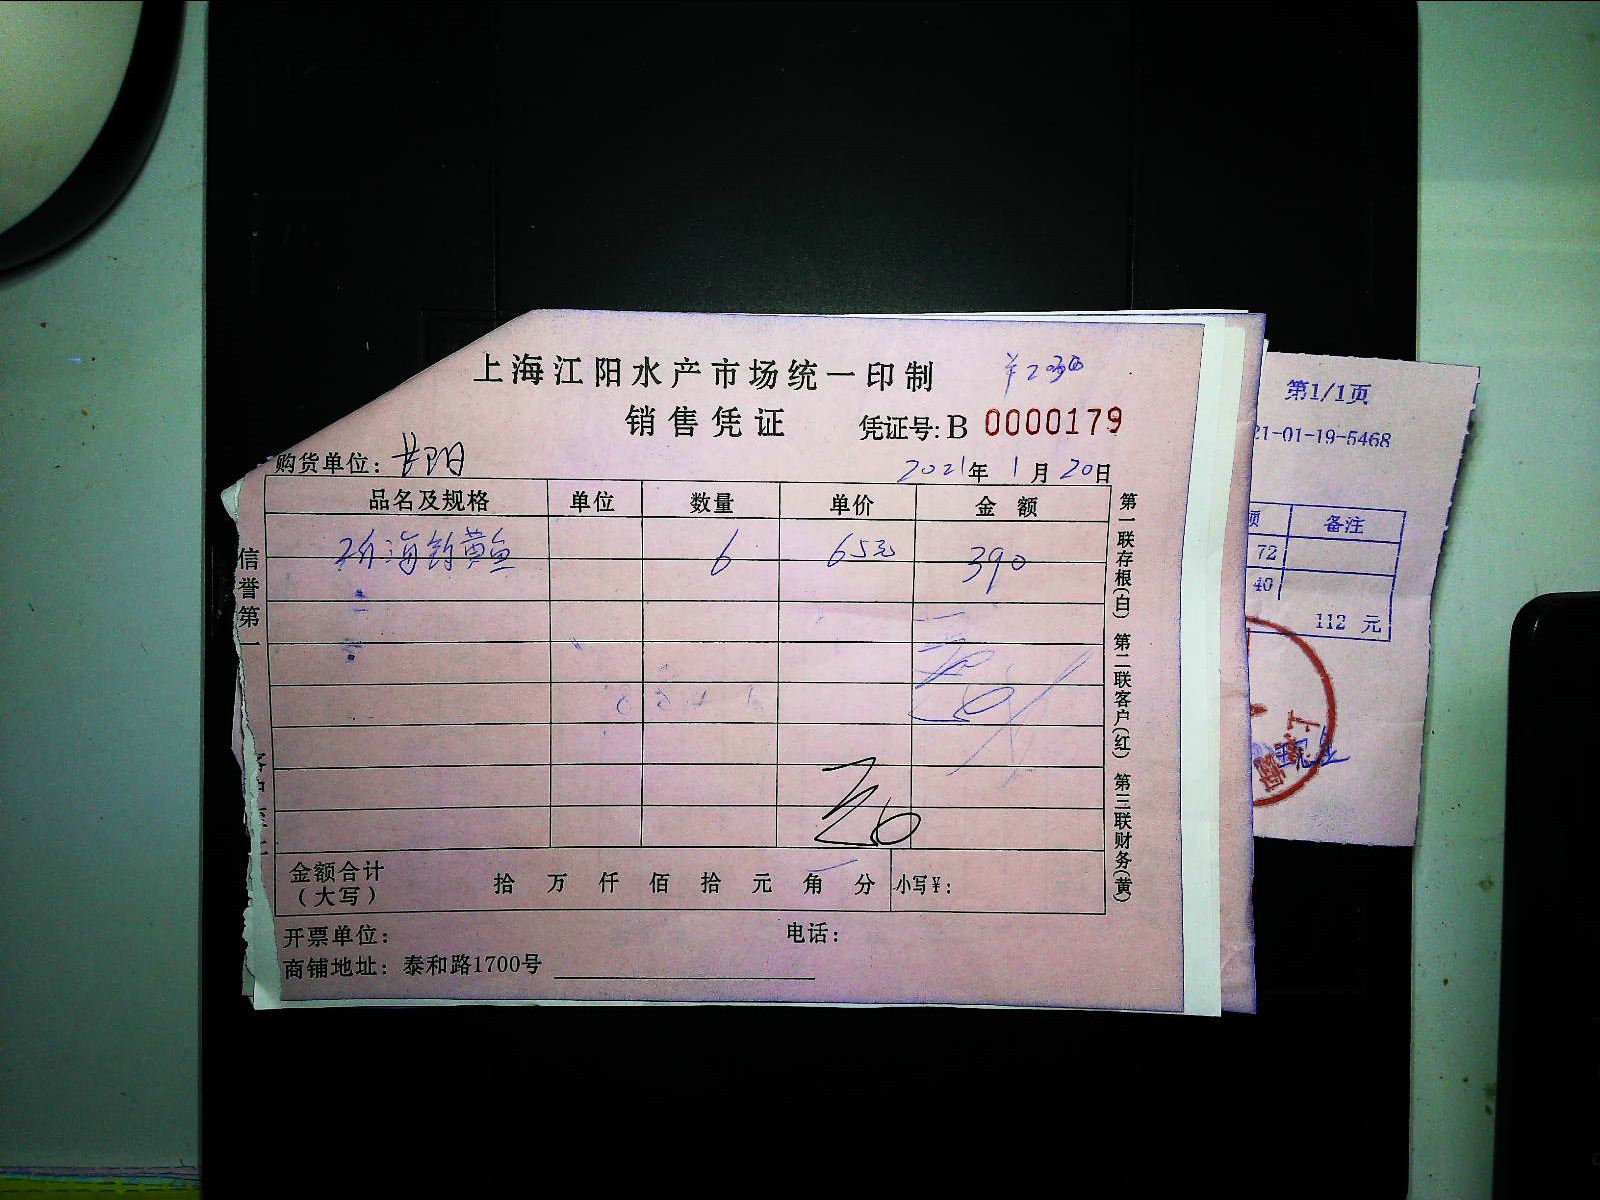 上海江阳水产市场统一印制
销售凭证 凭证号: B 0000179
购货单位:
2021年 1月 20日
品名及规格 单位 数量 单价 金额
海钓黄鱼 6 65元 390
金额合计(大写) 拾 万 仟 佰 拾 元 角 分 小写¥:
开票单位: 电话:
商铺地址: 泰和路1700号
信誉第一
第一联存根(白) 第二联客户(红) 第三联财务(黄)
第1/1页
21-01-19-5468
备注
72
40
112 元